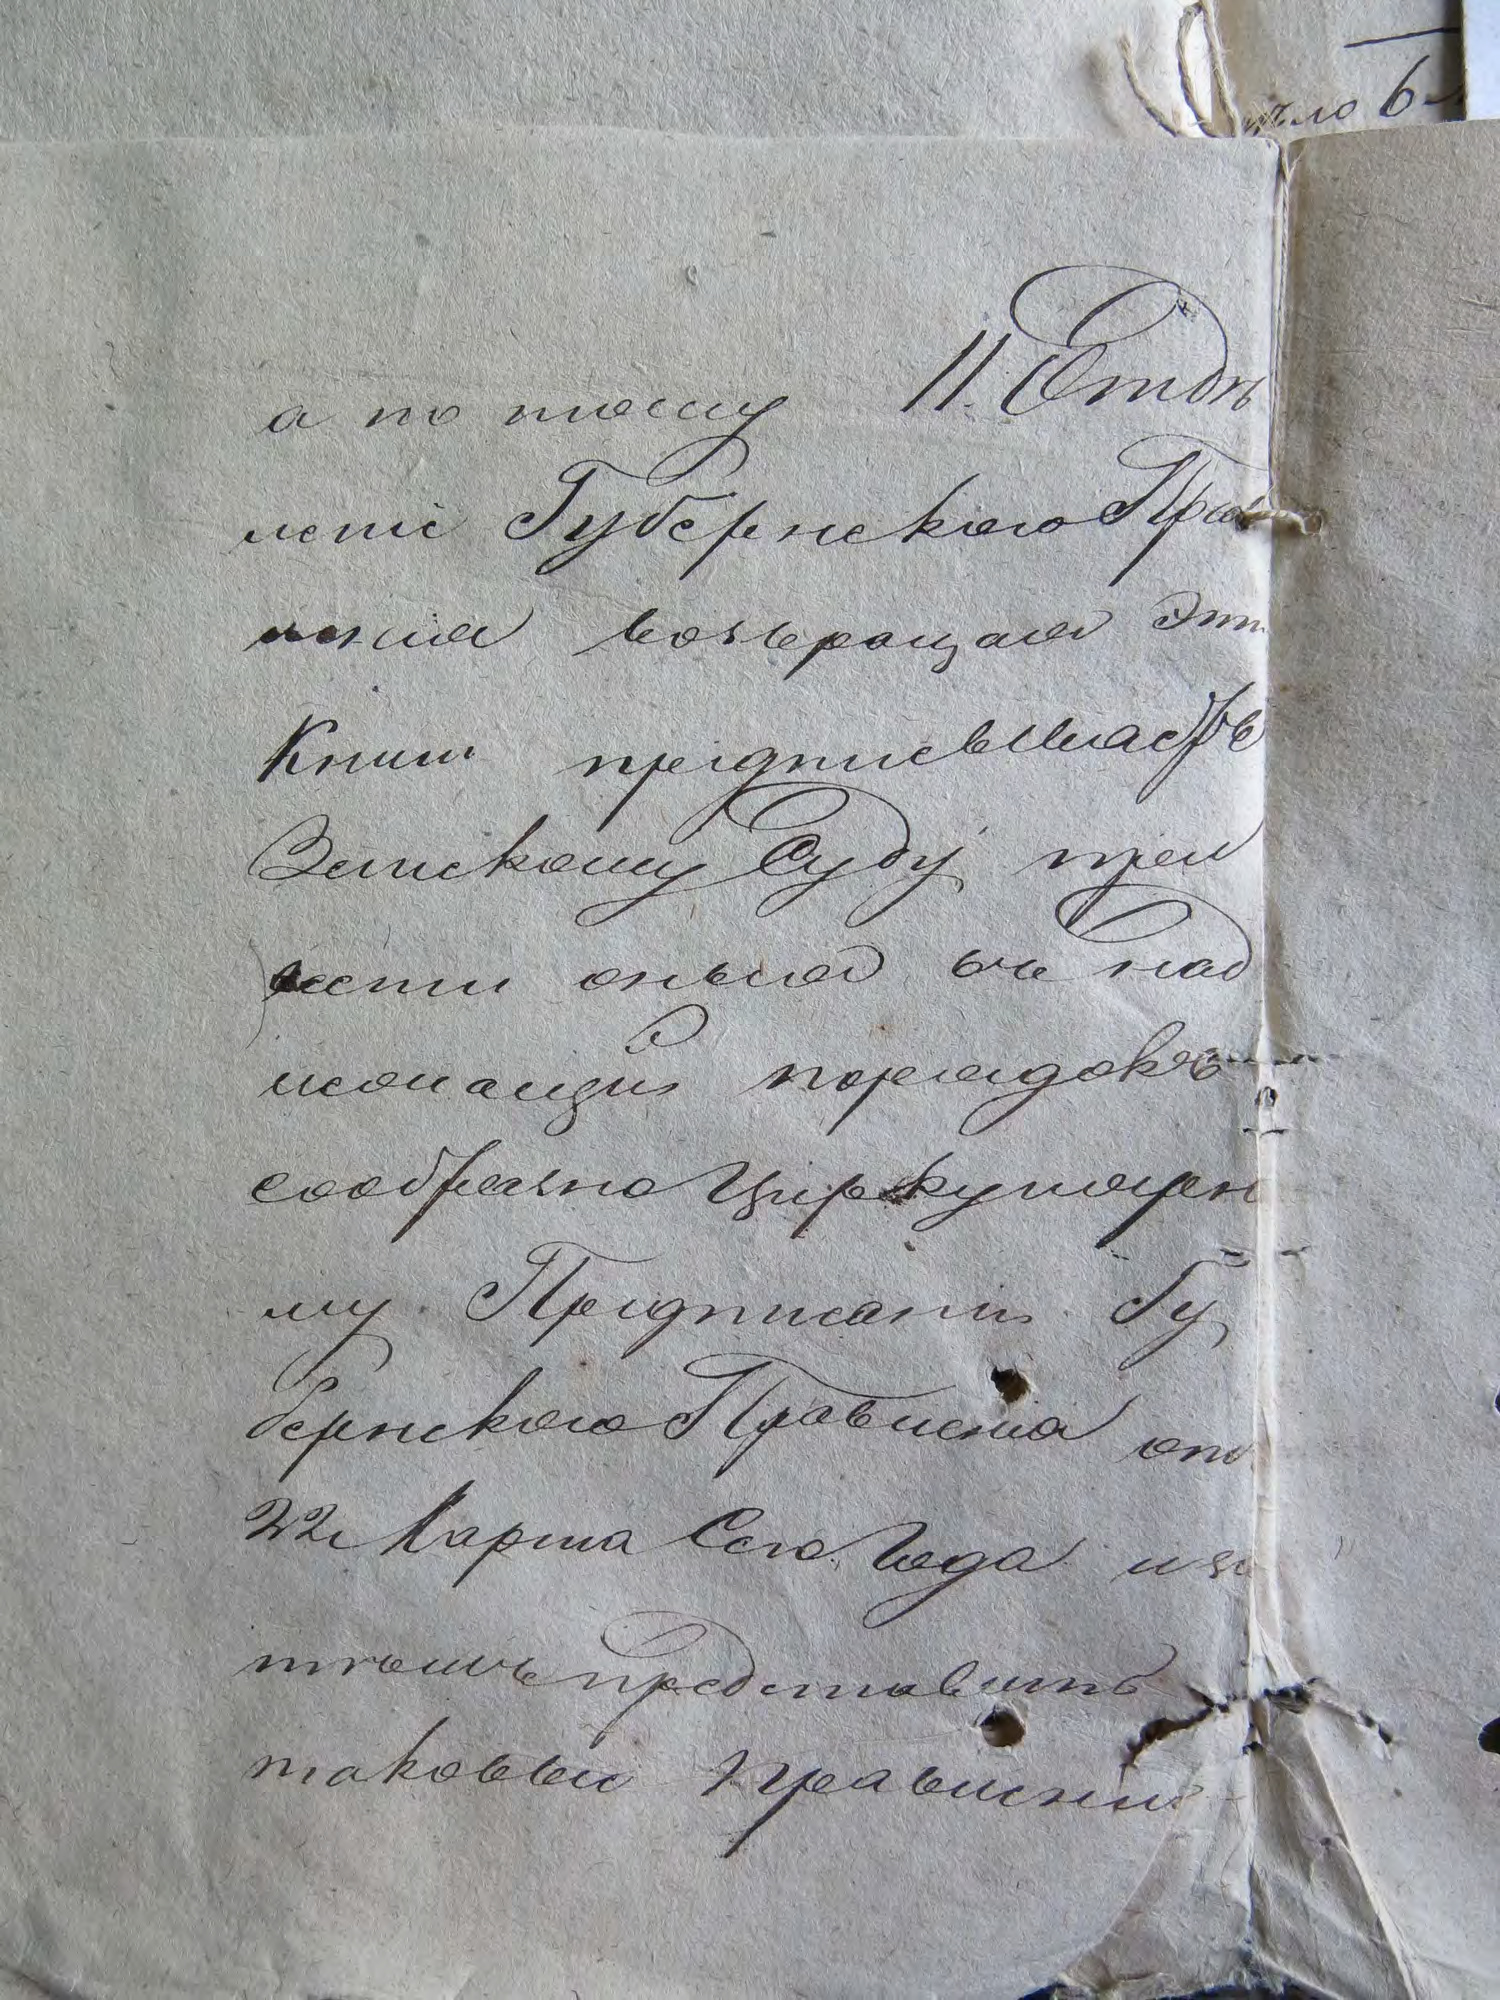 ѣло 6
а по тому II. Отдѣ
леніе Губернскаго Прав
ленія возвращая эти
Книги предписываетъ
Земскому Суду прив
ести оныя въ над
лежащій порядокъ
сообразно Циркулярно
му Предписанію Гу
бернскаго Правленія отъ
22 Марта Сего Года и за
тѣмъ представить
таковыя Правленію